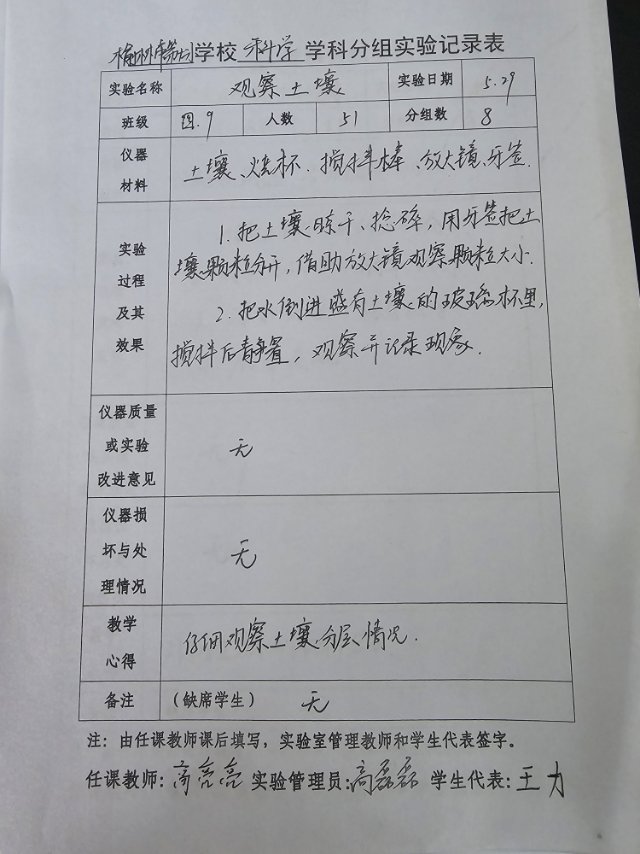 榆林市第 学校 科学 学科分组实验记录表
实验名称 观察土壤 实验日期 5.29
班级 四.9 人数 51 分组数 8
仪器材料 土壤、烧杯.搅拌棒、放大镜、牙签.
实验过程及其效果
1.把土壤晾干、捻碎,用牙签把土
壤颗粒分开,借助放大镜观察颗粒大小.
2.把水倒进盛有土壤的玻璃杯里,
搅拌后静置,观察并记录现象.
仪器质量或实验改进意见 无
仪器损坏与处理情况 无
教学心得 仔细观察土壤分层情况.
备注 (缺席学生) 无
注:由任课教师课后填写,实验室管理教师和学生代表签字。
任课教师: 亮亮 实验管理员:高磊磊 学生代表:王力